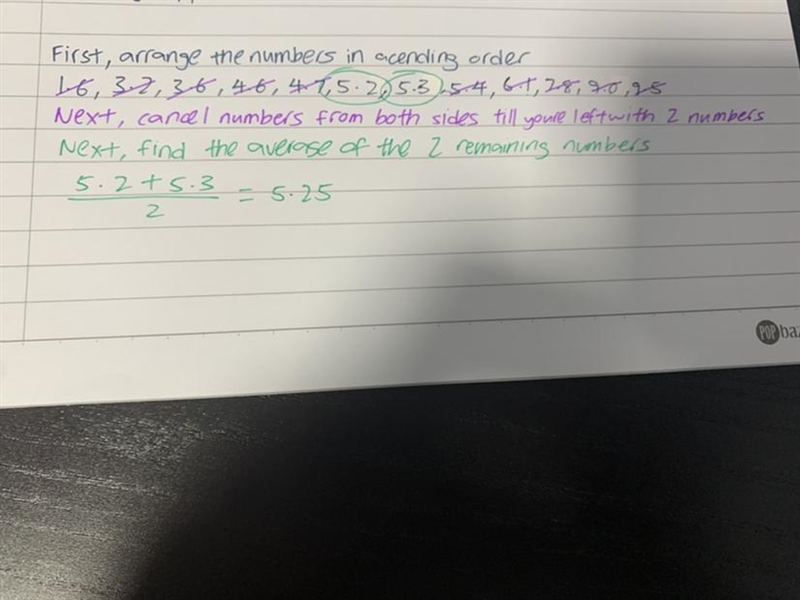 First, arrange the numbers in acending order
1.6, 3.2, 3.6, 4.6, 4.7, 5.2, 5.3, 5.4, 6.1,
Next, cancel numbers from both sides till youre left with 2 numbers
Next, find the average of the 2 remaining numbers
5.2 + 5.3
2
= 5.25
POP baz